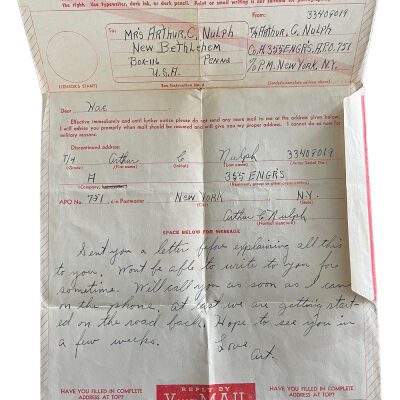 the right. Use typewriter, dark ink, or dark pencil. Faint or small writing is not suitable for photographing.
To:
From:
33409019
MRS ARTHUR, C. NULPH
New Bethlehem
Box-116 Penna
U.S.A.
T/4 ARTHUR, C. NULPH
Co. H 355 ENGRS, A.P.O. 751
% P.M. NEW YORK, N.Y.
(CENSOR'S STAMP)
See Instruction No. 2
(Sender's complete address above)
Dear
Effective immediately and until further notice please do not send any more mail to me at the address given below.
I will advise you promptly when mail should be resumed and will give you my proper address. I cannot do so now for
military reasons.
Discontinued address:
T/4 Arthur C Nulph 33409019
(Grade) (First name) (Initial) (Last name) (Army Serial No.)
H 355 ENGRS
(Company, (Regiment, group or other organization)
APO No. 751 c/o Postmaster NEW YORK N.Y.
(City) (State)
Arthur C Nulph
(Normal signature)
SPACE BELOW FOR MESSAGE
Sent you a letter before explaining all this
to you. Wont be able to write to you for
sometime. Will call you as soon as I can
on the phone. at last we are getting start-
ed on the road back. Hope to see you in
a few weeks.
Love
Art.
HAVE YOU FILLED IN COMPLETE
ADDRESS AT TOP?
REPLY BY
V···-MAIL
HAVE YOU FILLED IN COMPLETE
ADDRESS AT TOP?